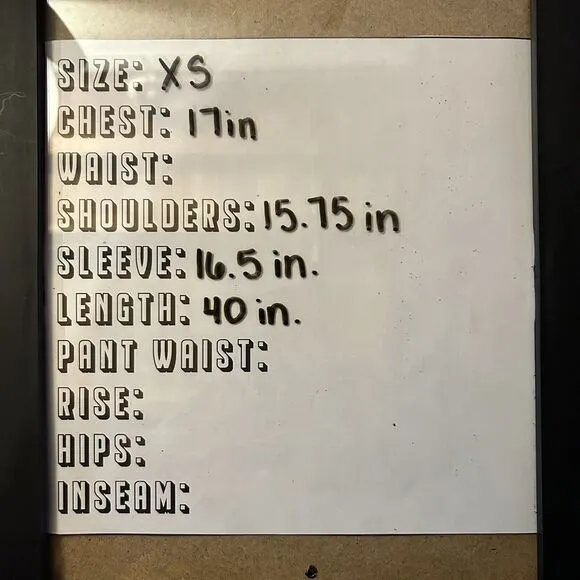 SIZE: XS
CHEST: 17in
WAIST:
SHOULDERS: 15.75 in
SLEEVE: 16.5 in.
LENGTH: 40 in.
PANT WAIST:
RISE:
HIPS:
INSEAM: